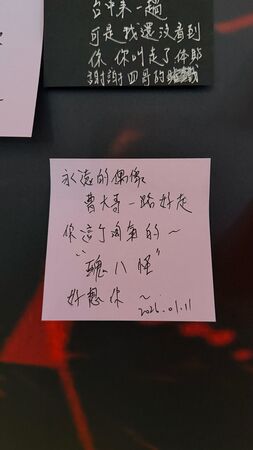 台中来一趟
可是我還沒看到
你 你叫走了体貼
謝謝四哥的
永遠的偶像
曹大哥一路好走
你這丁淘氣的～
"醜八怪"
好想你～
2026.01.11